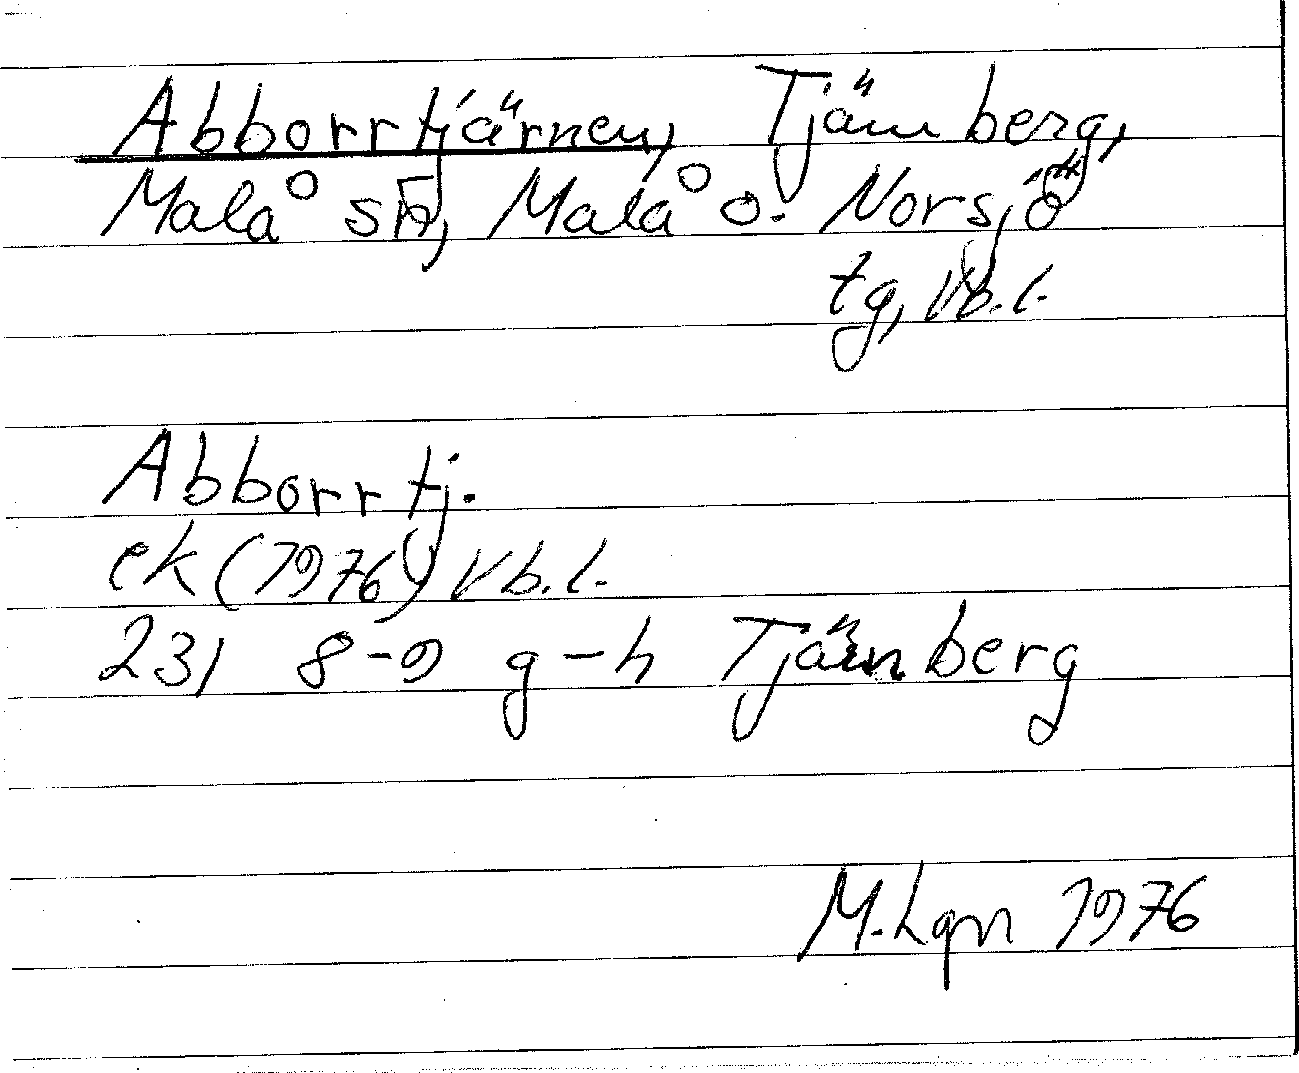 Abborrtjärnen, Tjärnberg,
Malå sn, Malå o. Norsjö
tg, Vb.l.
Abborrtj.
ek (1976) Vb.l.
231 8-9 g-h Tjärnberg
M. Lgn 1976